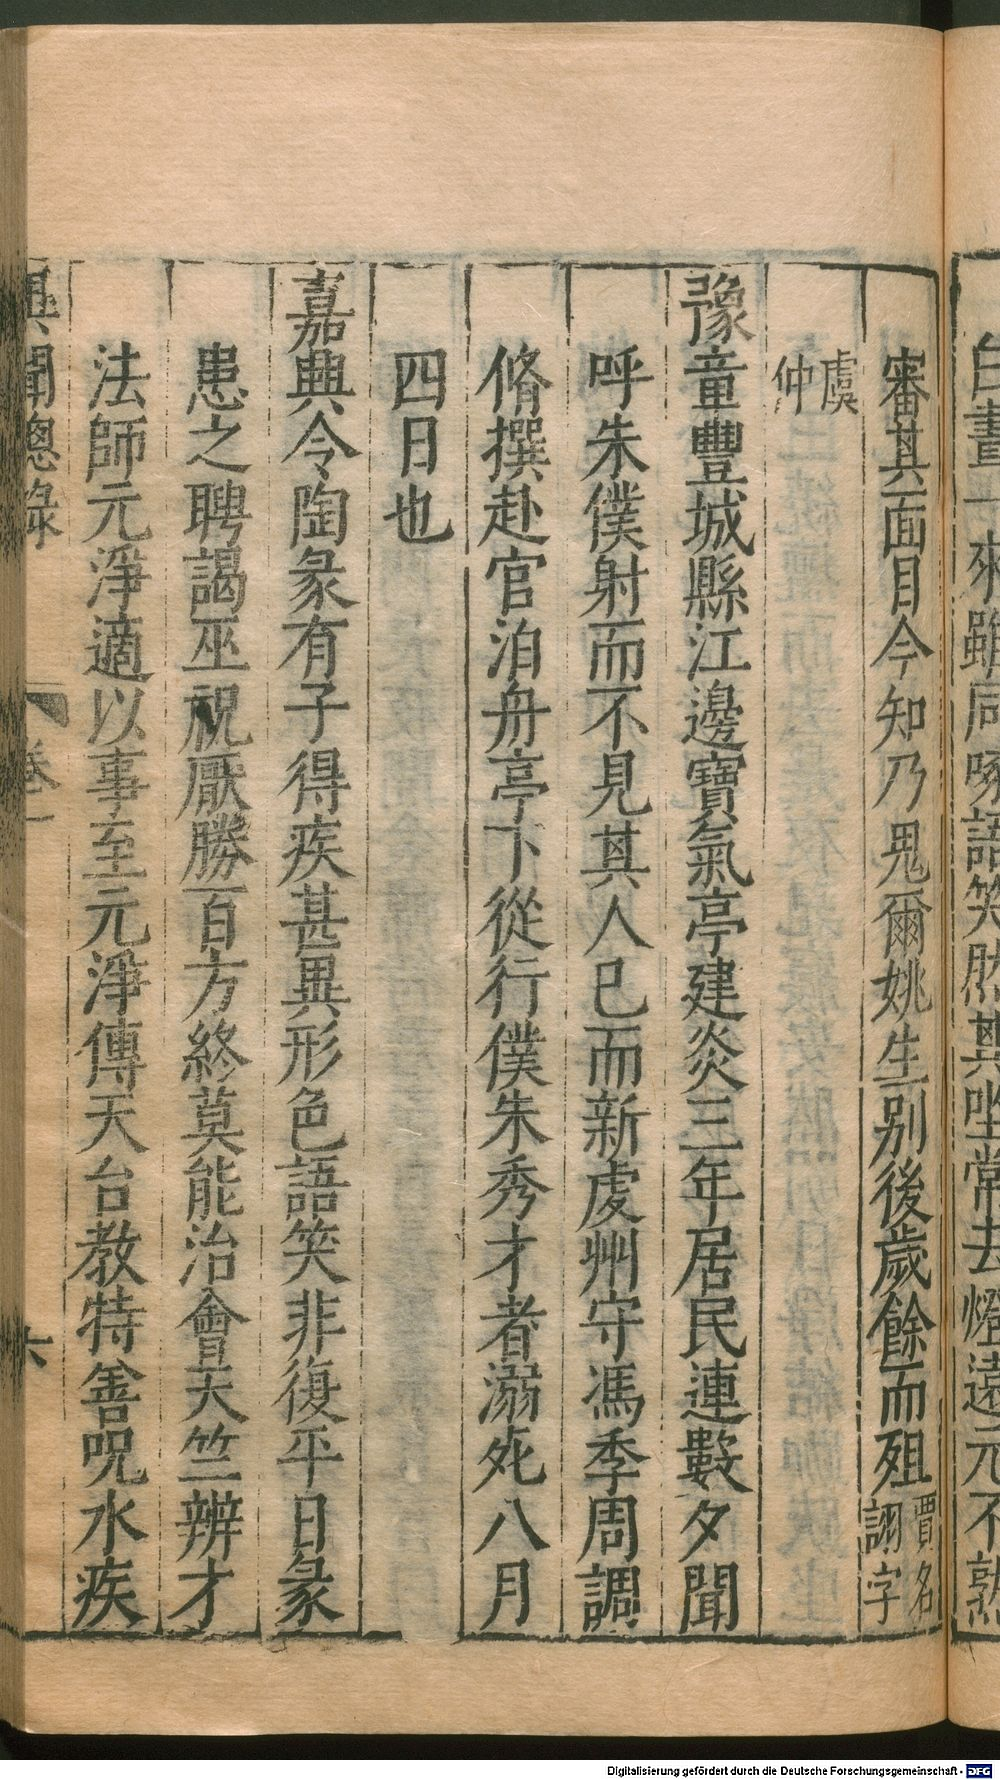 白晝一來雖同啄語笑然其坐常去燈遠元不熟
審其面目今知乃鬼爾姚生別後歲餘而殂賈名詡字
虞仲
豫章豐城縣江邊寶氣亭建炎三年居民連數夕聞
呼朱僕射而不見其人已而新虔州守馮季周調
脩撰赴官泊舟亭下從行僕朱秀才者溺死八月
四日也
嘉興令陶彖有子得疾甚異形色語笑非復平日彖
患之聘謁巫祝厭勝百方終莫能治會天竺辨才
法師元淨適以事至元淨傳天台教特善呪水疾
異聞總錄 卷一 六
Digitalisierung gefördert durch die Deutsche Forschungsgemeinschaft - DFG